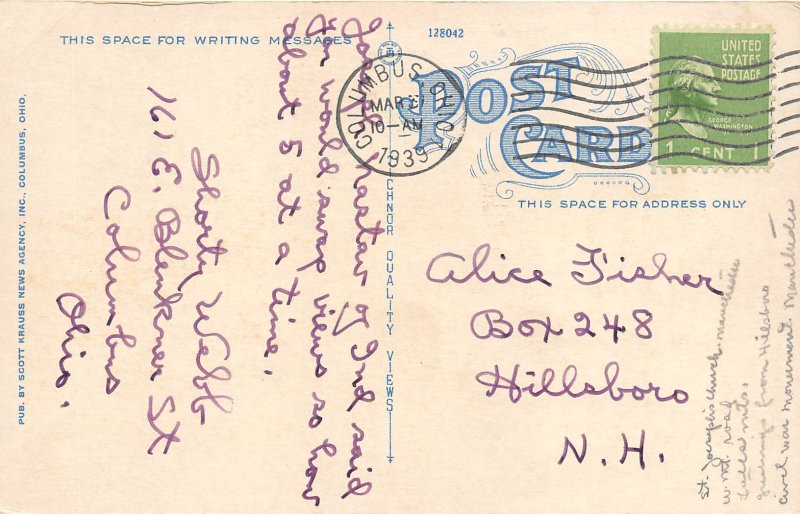 THIS SPACE FOR WRITING MESSAGES
128042
POST
CARD
THIS SPACE FOR ADDRESS ONLY
COLUMBUS, OHIO
MAR
10-AM
1939
UNITED
STATES
POSTAGE
GEORGE
WASHINGTON
1 CENT 1
PUB. BY SCOTT KRAUSS NEWS AGENCY, INC., COLUMBUS, OHIO.
CHNOR QUALITY VIEWS
of Ind said
You would swap views so how
about 5 at a time.
Shorty Webb
161 E. Blenkner St
Columbus
Ohio.
Alice Fisher
Box 248
Hillsboro
N.H.
St. Joseph's church manchester
w. mt. road
mts.
greetings from Hillsboro
civil war monument. Manchester